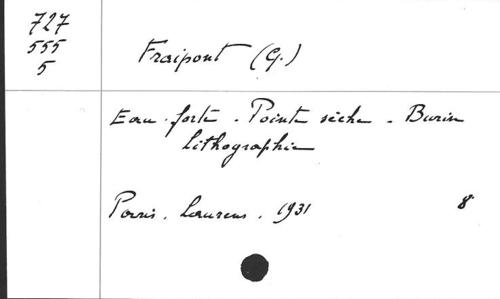 727
555
5
Fraipont (G.)
Eau-forte - Pointe sèche - Burin
Lithographie
Paris. Laurens. 1931 8°